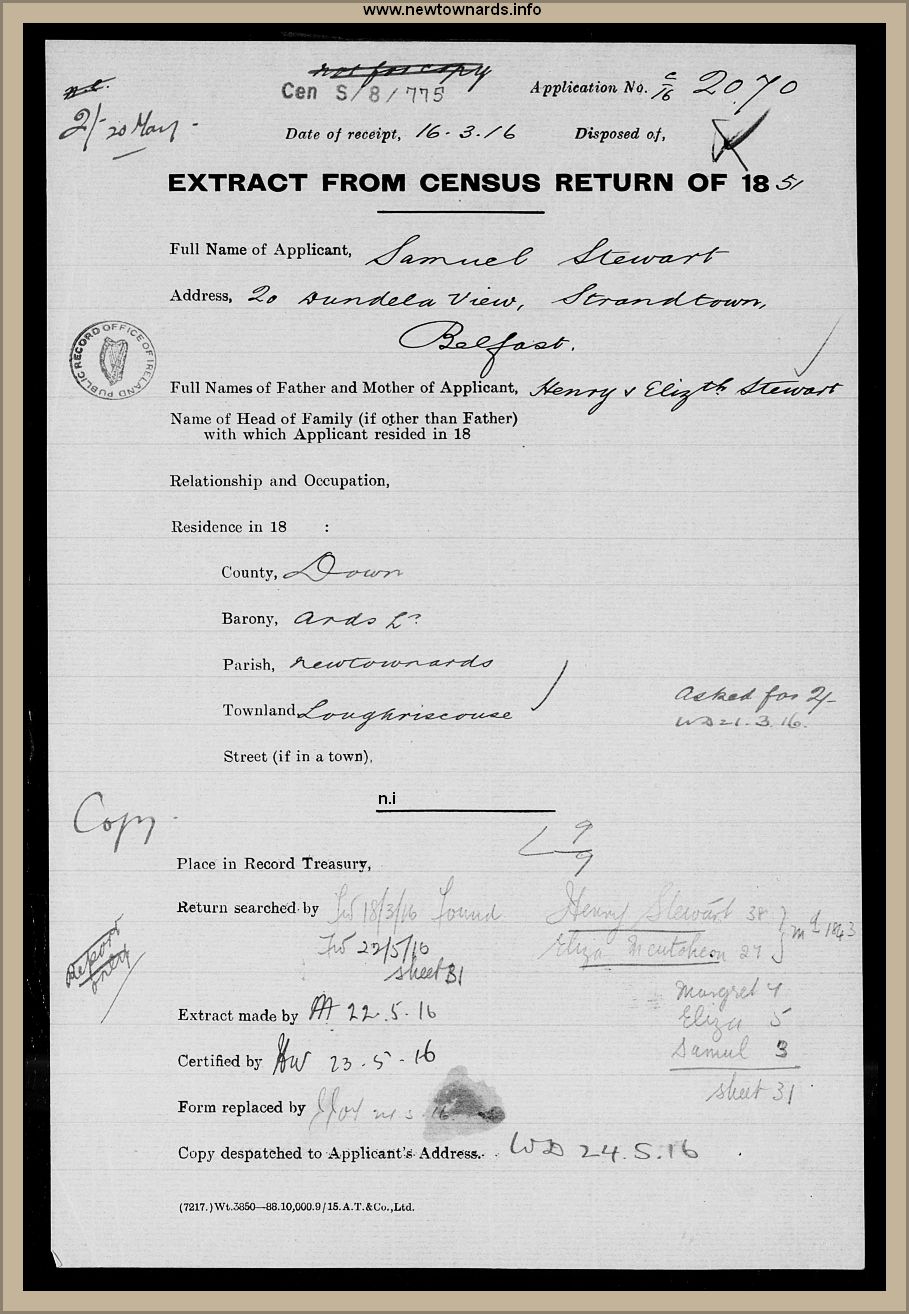 www.newtownards.info
not for copy
Cen S/8/775
Application No. C/16 2070
2/- 20 May -
Date of receipt, 16.3.16 Disposed of,
EXTRACT FROM CENSUS RETURN OF 1851
Full Name of Applicant, Samuel Stewart
Address, 20 Dundela View, Strandtown,
Belfast.
PUBLIC RECORD OFFICE OF IRELAND
Full Names of Father and Mother of Applicant, Henry & Elizth Stewart
Name of Head of Family (if other than Father)
with which Applicant resided in 18
Relationship and Occupation,
Residence in 18 :
County, Down
Barony, Ards Lr
Parish, Newtownards
Townland, Loughriscouse
Asked for 2/-
WD 21.3.16.
Street (if in a town),
n.i
Copy
9
9
Place in Record Treasury,
Return searched by 18/3/16 Found
Henry Stewart 38
Eliza McCutcheon 27
md 1843
22/5/16
sheet 31
Report only
Margret 7
Eliza 5
Samul 3
sheet 31
Extract made by 22.5.16
Certified by HW 23.5.16
Form replaced by
Copy despatched to Applicant's Address. WD 24.5.16
(7217.) Wt.3850—88.10,000.9/15. A.T.&Co.,Ltd.